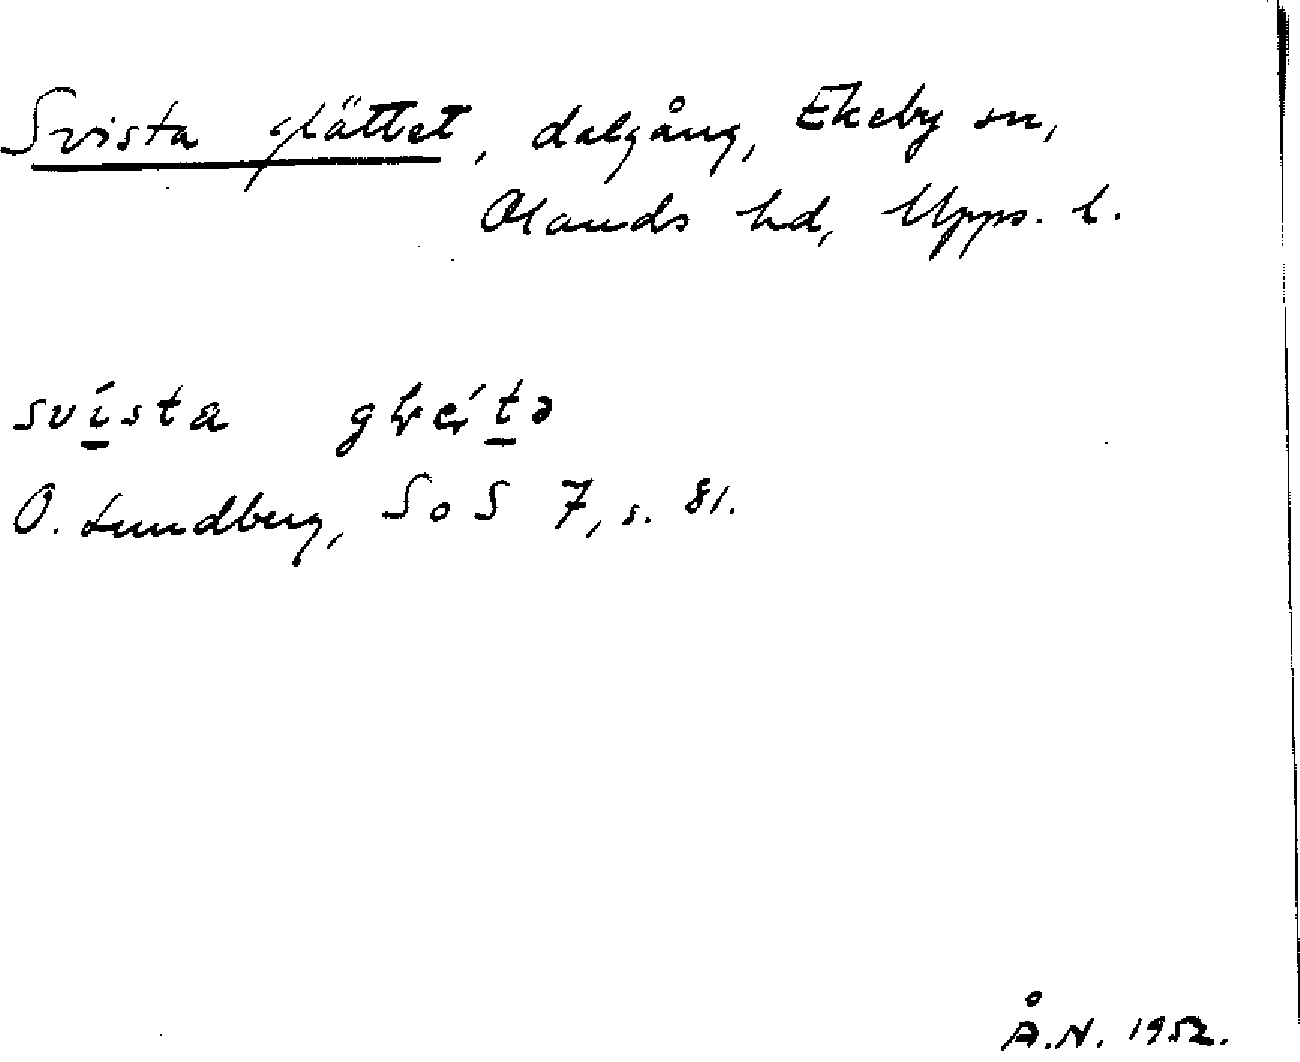 Svista glättet, dalgång, Ekeby sn,
Olands hd, Upps. l.
svista
O. Lundberg, SoS 7, s. 81.
Å.N. 1952.